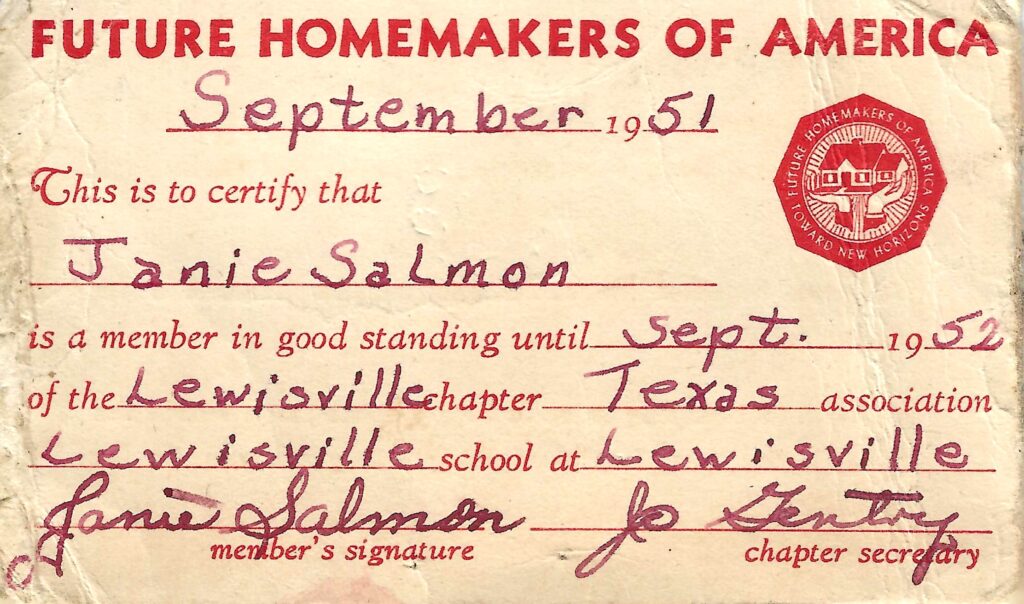 FUTURE HOMEMAKERS OF AMERICA
September 1951
FUTURE HOMEMAKERS OF AMERICA
TOWARD NEW HORIZONS
This is to certify that
Janie Salmon
is a member in good standing until Sept. 1952
of the Lewisville chapter Texas association
Lewisville school at Lewisville
Janie Salmon Jo Gentry
member's signature chapter secretary